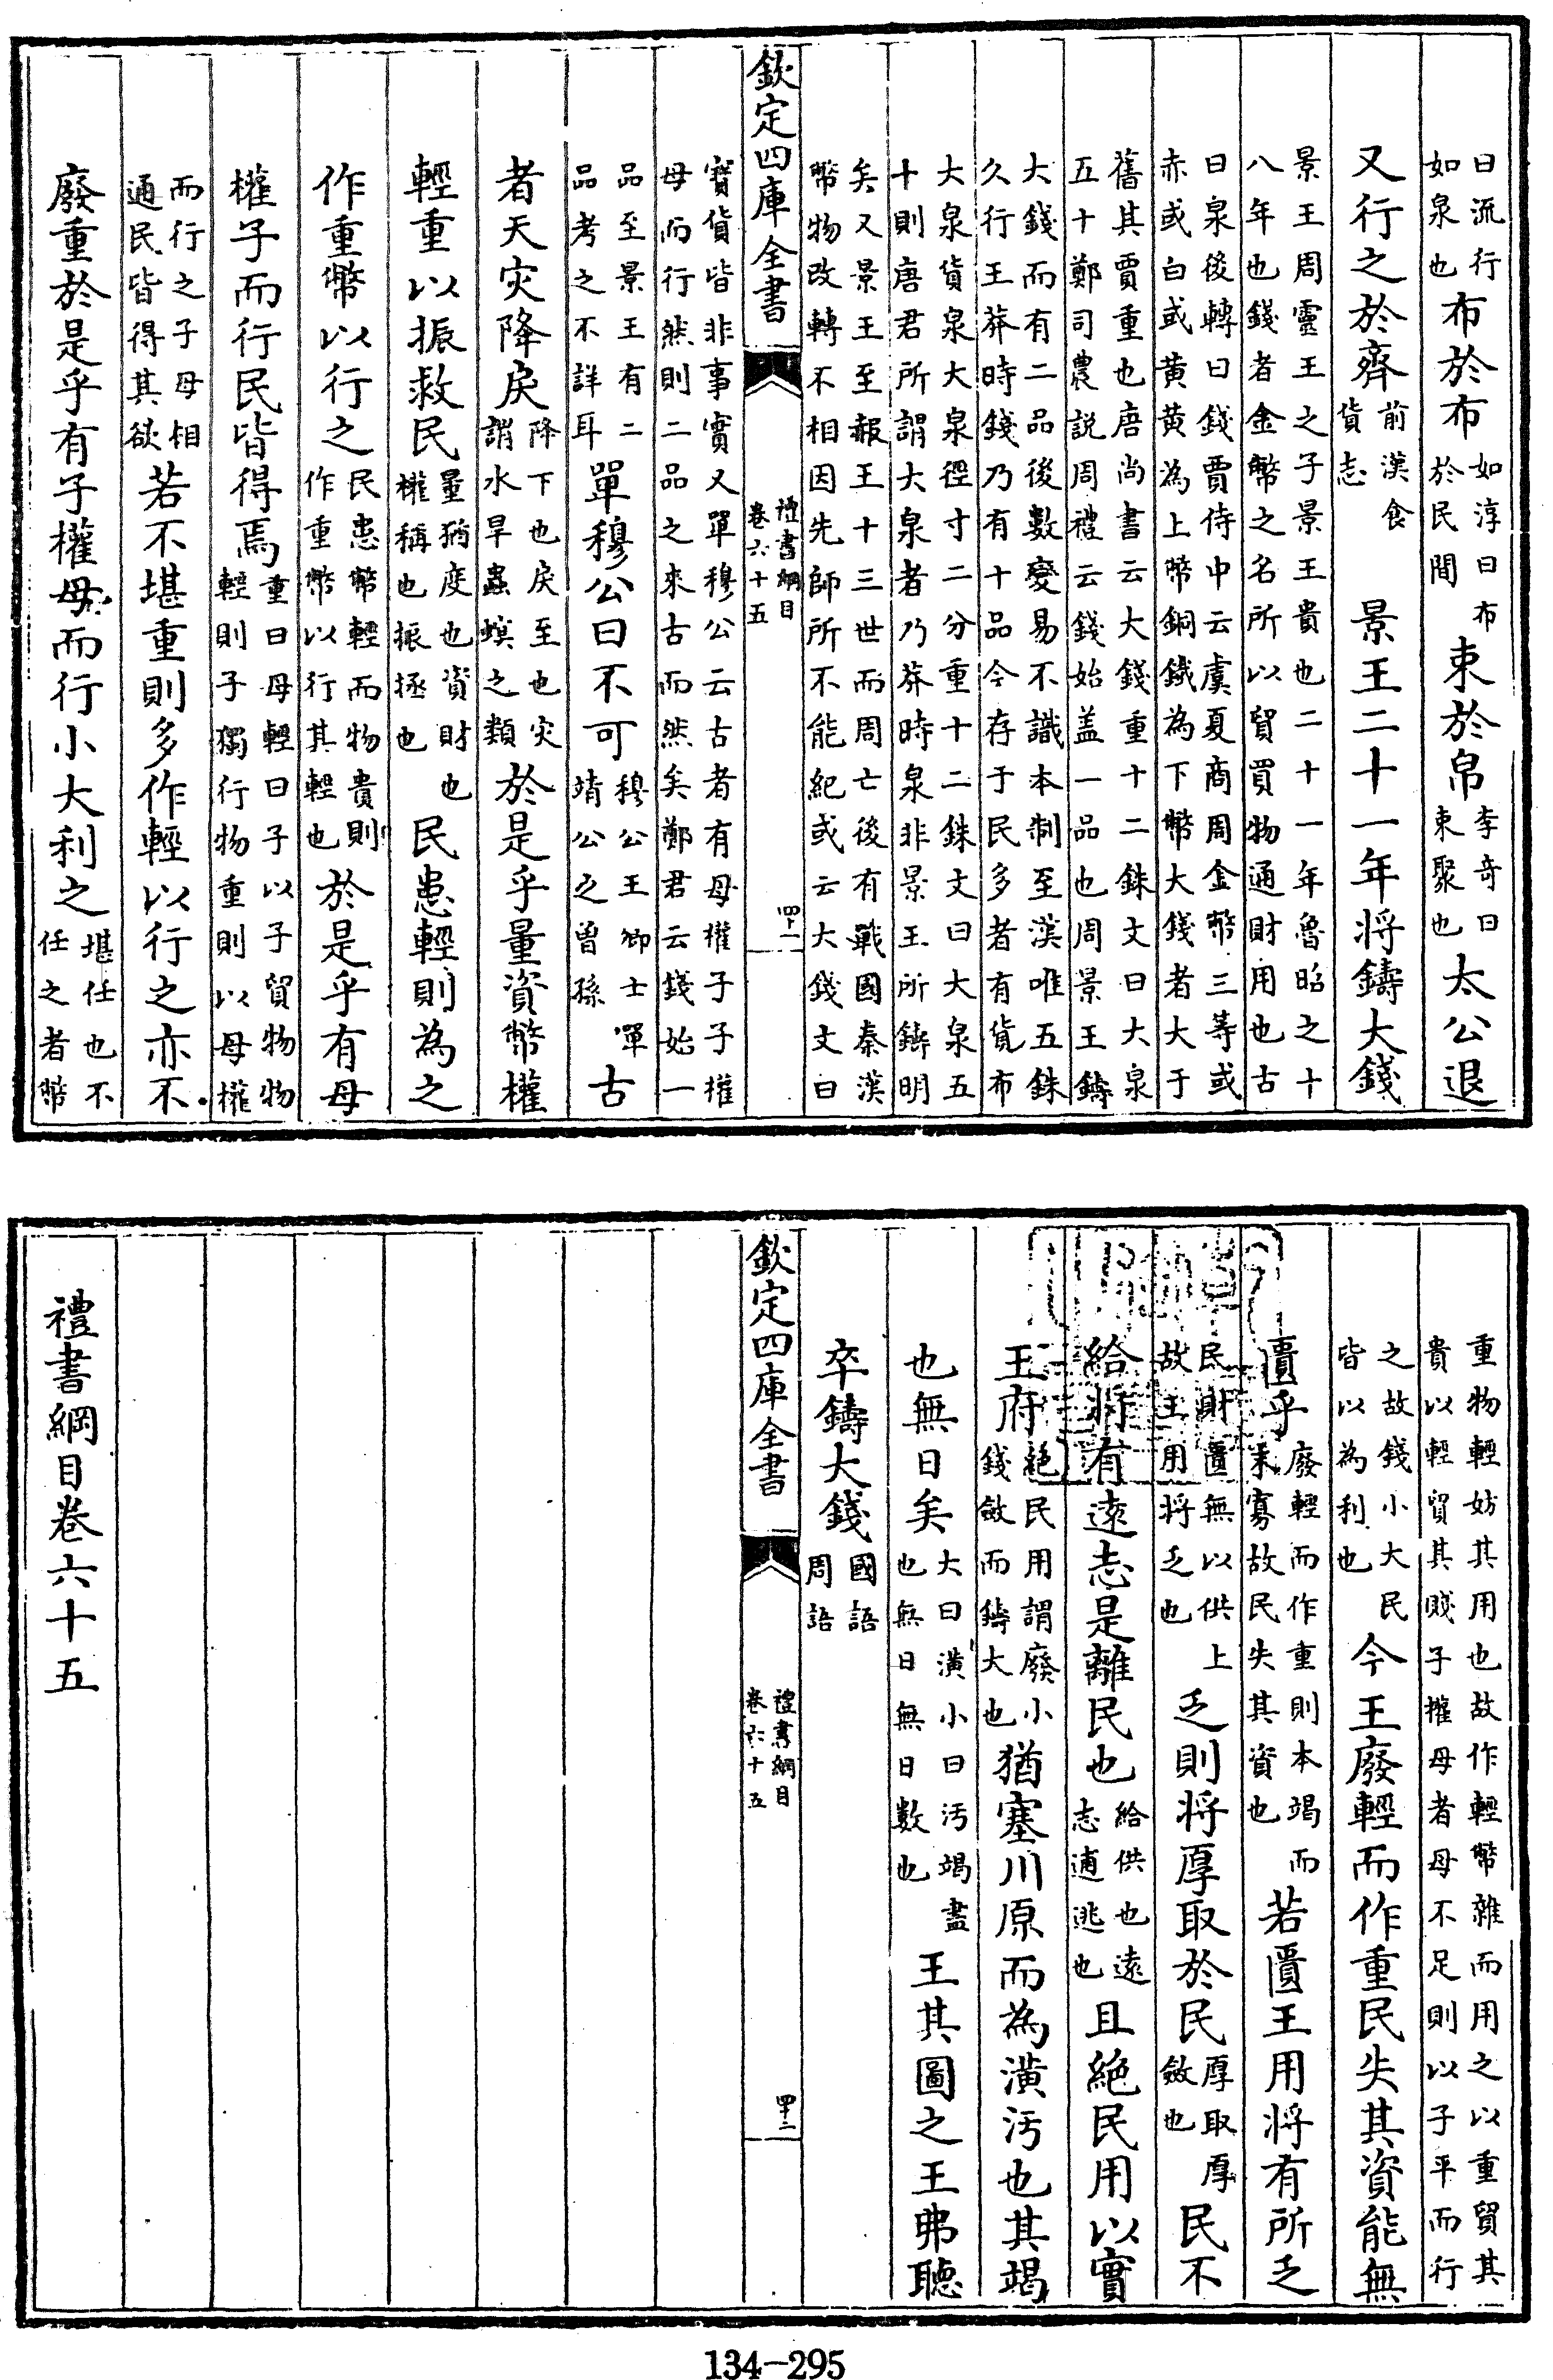 曰流行如泉也布於布如淳曰布於民間束於帛李奇曰束聚也太公退
又行之於齊前漢食貨志景王二十一年将鑄大錢
景王周靈王之子景王貴也二十一年魯昭之十八年也錢者金幣之名所以貿買物通財用也古
曰泉後轉曰錢賈侍中云虞夏商周金幣三等或赤或白或黄黄為上幣銅鐵為下幣大錢者大于
舊其賈重也唐尚書云大錢重十二銖文曰大泉五十鄭司農説周禮云錢始盖一品也周景王鑄
大錢而有二品後數變易不識本制至漢唯五銖久行王莽時錢乃有十品今存于民多者有貨布
大泉貨泉大泉徑寸二分重十二銖文曰大泉五十則唐君所謂大泉者乃莽時泉非景王所鑄明
矣又景王至赧王十三世而周亡後有戰國秦漢幣物改轉不相因先師所不能紀或云大錢文曰
欽定四庫全書 禮書綱目卷六十五 四十一
寶貨皆非事實又單穆公云古者有母權子子權母而行然則二品之來古而然矣鄭君云錢始一
品至景王有二品考之不詳耳單穆公曰不可穆公王卿士單靖公之曾孫古
者天灾降戾降下也戾至也灾謂水旱蟲螟之類於是乎量資幣權
輕重以振救民量猶度也資財也權稱也振拯也民患輕則為之
作重幣以行之民患幣輕而物貴則作重幣以行其輕也於是乎有母
權子而行民皆得焉重曰母輕曰子以子貿物物輕則子獨行物重則以母權
而行之子母相通民皆得其欲若不堪重則多作輕以行之亦不
廢重於是乎有子權母而行小大利之堪任也不任之者幣
重物輕妨其用也故作輕幣雜而用之以重貿其貴以輕貿其賤子權母者母不足則以子平而行
之故錢小大民皆以為利也今王廢輕而作重民失其資能無
匱乎廢輕而作重則本竭而末寡故民失其資也若匱王用将有所乏
民財匱無以供上故王用将乏也乏則将厚取於民厚取厚斂也民不
給将有遠志是離民也給供也遠志逋逃也且絶民用以實
王府絶民用謂廢小錢斂而鑄大也猶塞川原而為潢汚也其竭
也無日矣大曰潢小曰汚竭盡也無日無日數也王其圖之王弗聽
卒鑄大錢國語周語
欽定四庫全書 禮書綱目卷六十五 四十二
禮書綱目卷六十五
134-295